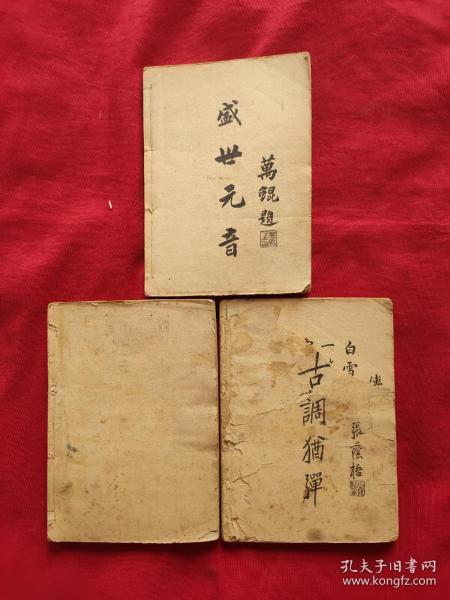 盛世元音
萬鲲題
白雪
古調猶彈
張蔭梧
孔夫子旧书网
www.kongfz.com